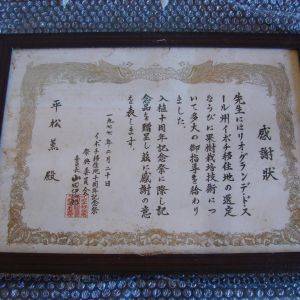 感謝状
先生にはリオグランデドス
ール州イボチ移住地の選定
ならびに果樹栽培技術につ
いて多大の御指導を賜わり
ました
入植十周年記念祭に際し記
念品を贈呈し茲に感謝の意
を表します
一九七七年二月二十日
イボチ移住地十周年記念祭
祭典委員会
委員長
平松薫殿